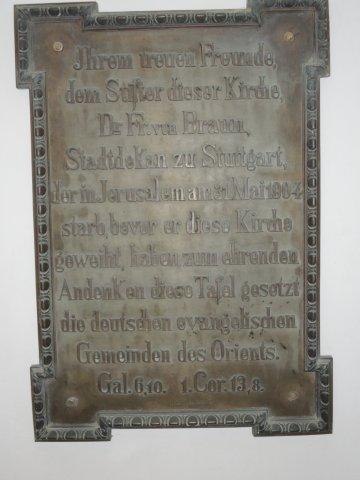 Ihrem treuen Freunde,
dem Stifter dieser Kirche,
Dr. Fr. von Braun,
Stadtdekan zu Stuttgart,
der in Jerusalem am 31. Mai 1904
starb, bevor er diese Kirche
geweiht, haben zum ehrenden
Andenken diese Tafel gesetzt
die deutschen evangelischen
Gemeinden des Orients.
Gal. 6,10. 1. Cor. 13,8.